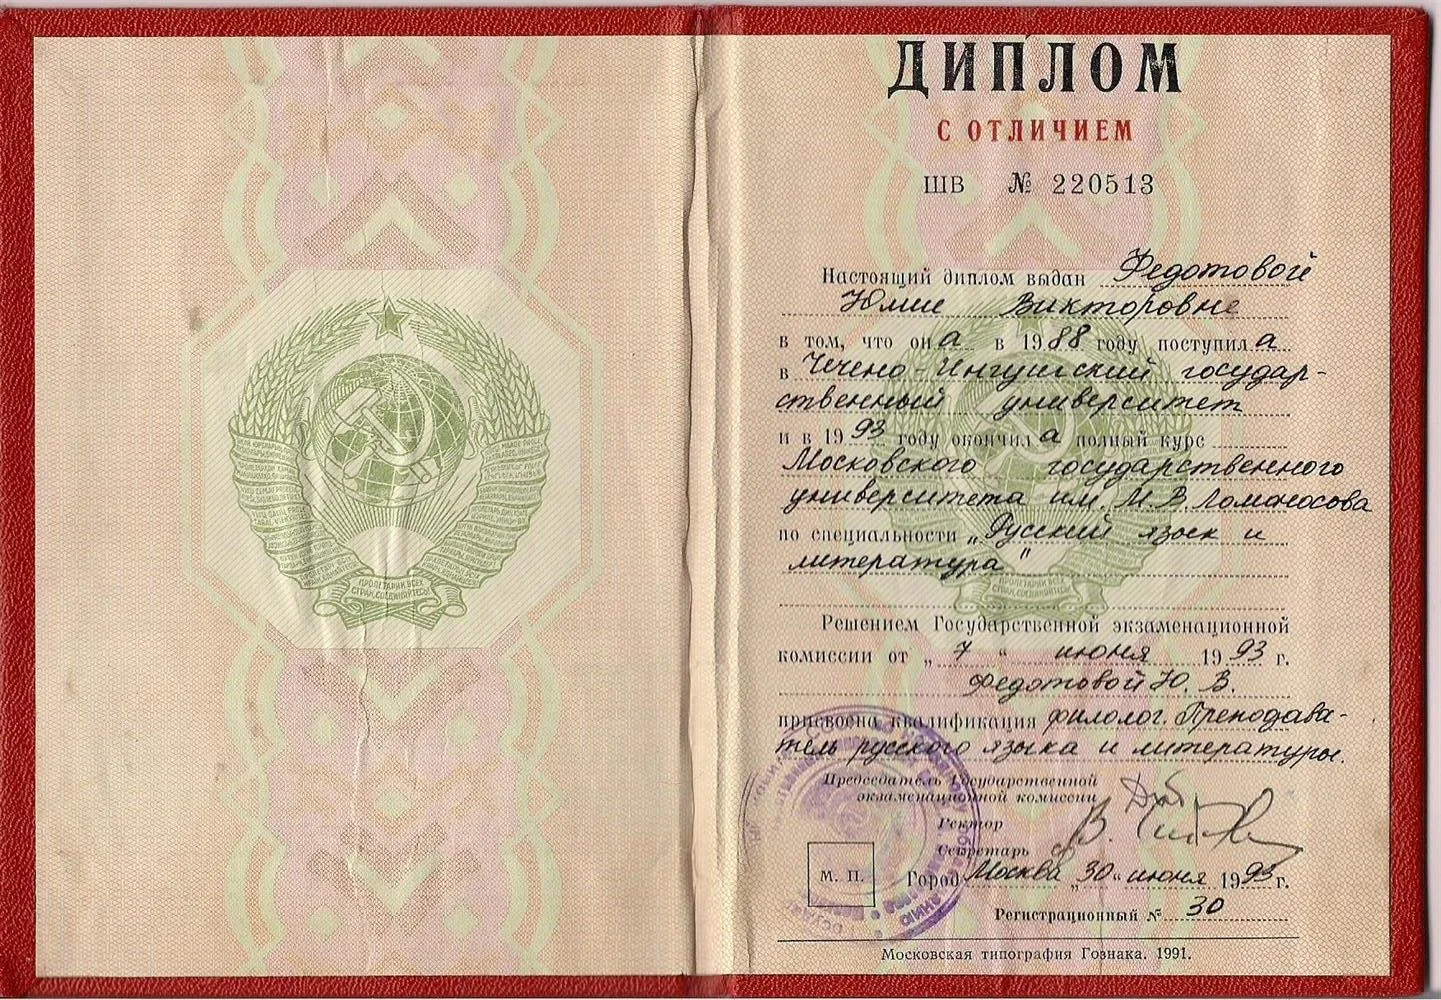 ПРОЛЕТАРИИ ВСЕХ
СТРАН, СОЕДИНЯЙТЕСЬ!
ДИПЛОМ
С ОТЛИЧИЕМ
ШВ № 220513
Настоящий диплом выдан Федотовой
Юлие Викторовне
в том, что она в 1988 году поступила
в Чечено-Ингушский государ-
ственный университет
и в 1993 году окончила полный курс
Московского государственного
университета им. М.В. Ломоносова
по специальности „Русский язык и
литература"
Решением Государственной экзаменационной
комиссии от „7" июня 1993 г.
Федотовой Ю. В.
присвоена квалификация филолог. Преподава-
тель русского языка и литературы.
Председатель Государственной
экзаменационной комиссии
Ректор
Секретарь
М. П.
Город Москва „30" июня 1993 г.
Регистрационный № 30
Московская типография Гознака. 1991.